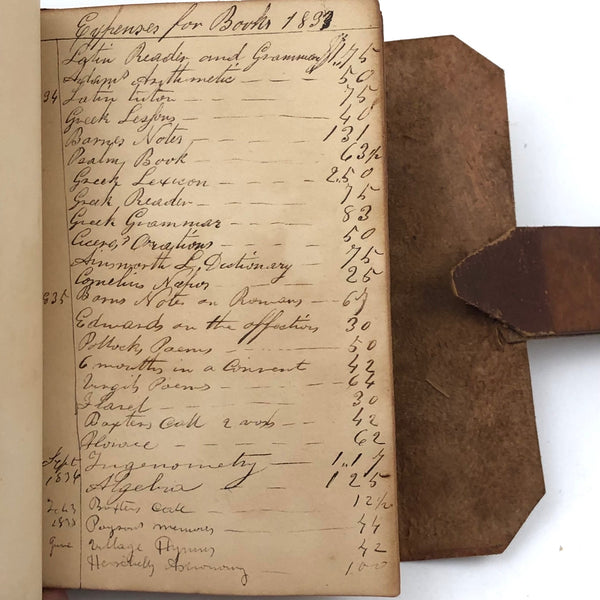 Expenses for Books 1833
Latin Reader and Grammar $1,75
Adams Arithmetic 50
34 Latin tutor 75
Greek Lessons 40
Barnes Notes 131
Psalm Book 63½
Greek Lexicon 2.50
Greek Reader 75
Greek Grammar 83
Ciceros Orations 50
Ainsworth L. Dictionary 75
Cornelius Nepos 25
835 Barns Notes on Romans 67
Edwards on the affections 30
Pollocks Poems 50
6 months in a Convent 42
Virgils Poems 64
30
Baxters Call 2 vols 42
Horace 62
Sept 1836 1.17
Algebra 125
Baxters Call 12½
1838 Paysons memoirs 44
June Village Hymns 42
Herschells Astronomy 100